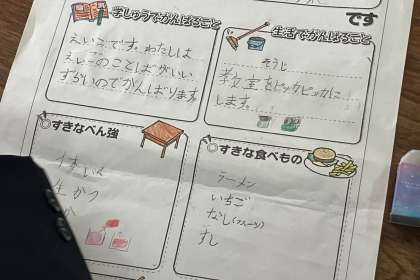 です
学しゅうでがんばること
えいごです。わたしは
えいごのことばがいい
ずらいのでがんばります
生活でがんばること
そうじ
教室をピッカピカに
します。
すきなべん強
生かつ
すきな食べもの
ラーメン
いちご
なし(フルーツ)
すし